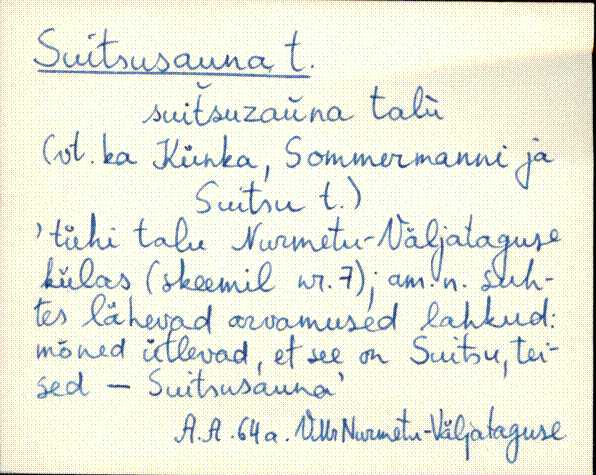 Suitsusauna t.
suitšuzaŭna talù
(vt. ka Künka, Sommermanni ja
Suitsu t.)
'tühi talu Nurmetu-Väljataguse
külas (skeemil nr. 7); am. n. suh-
tes lähevad arvamused lahkud:
mõned ütlevad, et see on Suitsu, tei-
sed — Suitsusauna'
A.A. 64a. VMr Nurmetu-Väljataguse